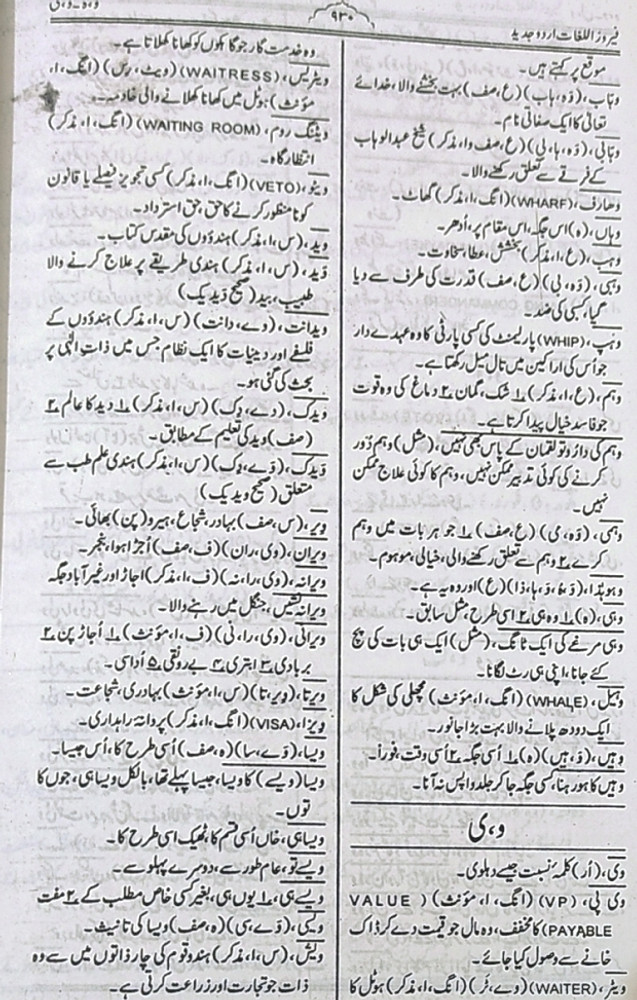 فیروز اللغات اردو جدید
۹۳۰
موقع پر کہتے ہیں۔
وہاب، (وَہ، ہاب) (ع، صف) بہت بخشنے والا، خدائے
تعالیٰ کا ایک صفاتی نام۔
وہابی، (وَہ، ہا، بی) (ع، صف و ا، مذکر) شیخ عبدالوہاب
کے فرقے سے تعلق رکھنے والا۔
وھارف، (WHARF) (انگ، ا، مذکر) گھاٹ۔
وہاں، (ہ) اس جگہ، اس مقام پر، اُدھر۔
وہب، (ع، ا، مذکر) بخشش، عطا، سخاوت۔
وہبی، (وَہ، بی) (ع، صف) قدرت کی طرف سے دیا
گیا، کسبی کی ضد۔
وہپ، (WHIP) پارلیمنٹ کی کسی پارٹی کا وہ عہدے دار
جو اُس کی اراکین میں تال میل رکھتا ہے۔
وہم، (ع، ا، مذکر) ۱۔ شک، گمان ۲۔ دماغ کی وہ قوت
جو فاسد خیال پیدا کرتا ہے۔
وہم کی دارو تو لقمان کے پاس بھی نہیں، (مثل) وہم دُور
کرنے کی کوئی تدبیر ممکن نہیں، وہم کا کوئی علاج ممکن
نہیں۔
وہمی، (وَہ، می) (ع، صف) ۱۔ جو ہر بات میں وہم
کرے ۲۔ وہم سے تعلق رکھنے والی، خیالی، موہوم۔
وہوہٰذا، (ع) اور وہ یہ ہے۔
وہی، (ہ) ۱۔ وہ ہی ۲۔ اسی طرح، مثل سابق۔
وہی مرغے کی ایک ٹانگ، (مثل) ایک ہی بات کی پچ
کئے جانا، اپنی ہی رٹ لگانا۔
وہیل، (WHALE) (انگ، ا، مؤنث) مچھلی کی شکل کا
ایک دودھ پلانے والا بہت بڑا جانور۔
وہیں، (وَ، ہیں) (ہ) ۱۔ اُسی جگہ ۲۔ اُسی وقت، فوراً۔
وہیں کا ہو رہنا، کسی جگہ جا کر جلد واپس نہ آنا۔
و، ی
وی، (اُر) کلمہ نسبت جیسے دہلوی۔
وی پی، (VP) (انگ، ا، مؤنث) (VALUE
PAYABLE) کا مخفف، وہ مال جو قیمت دے کر ڈاک
خانے سے وصول کیا جائے۔
ویٹر، (WAITER) (وے، ٹر) (انگ، ا، مذکر) ہوٹل کا
وہ خدمت گار جو گاہکوں کو کھانا کھلاتا ہے۔
ویٹریس، (WAITRESS) (ویٹ، رِس) (انگ، ا،
مؤنث) ہوٹل میں کھانا کھلانے والی خادمہ۔
ویٹنگ روم، (WAITING ROOM) (انگ، ا، مذکر)
انتظار گاہ۔
ویٹو، (VETO) (انگ، ا، مذکر) کسی تجویز فیصلے یا قانون
کو نامنظور کرنے کا حق، حق استرداد۔
وید، (س، ا، مذکر) ہندوؤں کی مقدس کتاب۔
وَید، (س، ا، مذکر) ہندی طریقے پر علاج کرنے والا
طبیب، بید (صحیح وَیدیک)
ویدانت، (وے، دانت) (س، ا، مذکر) ہندوؤں کے
فلسفے اور دینیات کا ایک نظام جس میں ذات الٰہی پر
بحث کی گئی ہو۔
ویدک، (وے، دِک) (س، ا، مذکر) ۱۔ وید کا عالم ۲۔
(صف) وید کی تعلیم کے مطابق۔
وَیدک، (وَے، دِک) (س، ا، مذکر) ہندی علم طب سے
متعلق (صحیح ویدیک)
ویر، (س، صف) بہادر، شجاع، ہیرو (پن) بھائی۔
ویران، (وی، ران) (ف، صف) اُجڑا ہوا، بنجر۔
ویرانہ، (وی، را، نہ) (ف، ا، مذکر) اجاڑ اور غیر آباد جگہ
ویرانہ نشیں، جنگل میں رہنے والا۔
ویرانی، (وی، را، نی) (ف، ا، مؤنث) ۱۔ اُجاڑ پن ۲۔
بربادی ۳۔ ابتری ۴۔ بے رونقی ۵۔ اُداسی۔
ویرتا، (ویر، تا) (س، ا، مؤنث) بہادری، شجاعت۔
ویزا، (VISA) (انگ، ا، مذکر) پروانۂ راہداری۔
ویسا، (وَے، سا) (ہ، صف) اُسی طرح کا، اُس جیسا۔
ویسا (ویسے) کا ویسا، جیسا پہلے تھا، بالکل ویسا ہی، جوں کا
توں۔
ویسا ہی، خاں اُسی قسم کا، ٹھیک اسی طرح کا۔
ویسے تو، عام طور سے، دوسرے پہلو سے۔
ویسے ہی، ۱۔ یوں ہی، بغیر کسی خاص مطلب کے ۲۔ مفت
ویسی، (وَے، سی) (ہ، صف) ویسا کی تانیث۔
ویش، (س، ا، مذکر) ہندو قوم کی چار ذاتوں میں سے وہ
ذات جو تجارت اور زراعت کرتی ہے۔